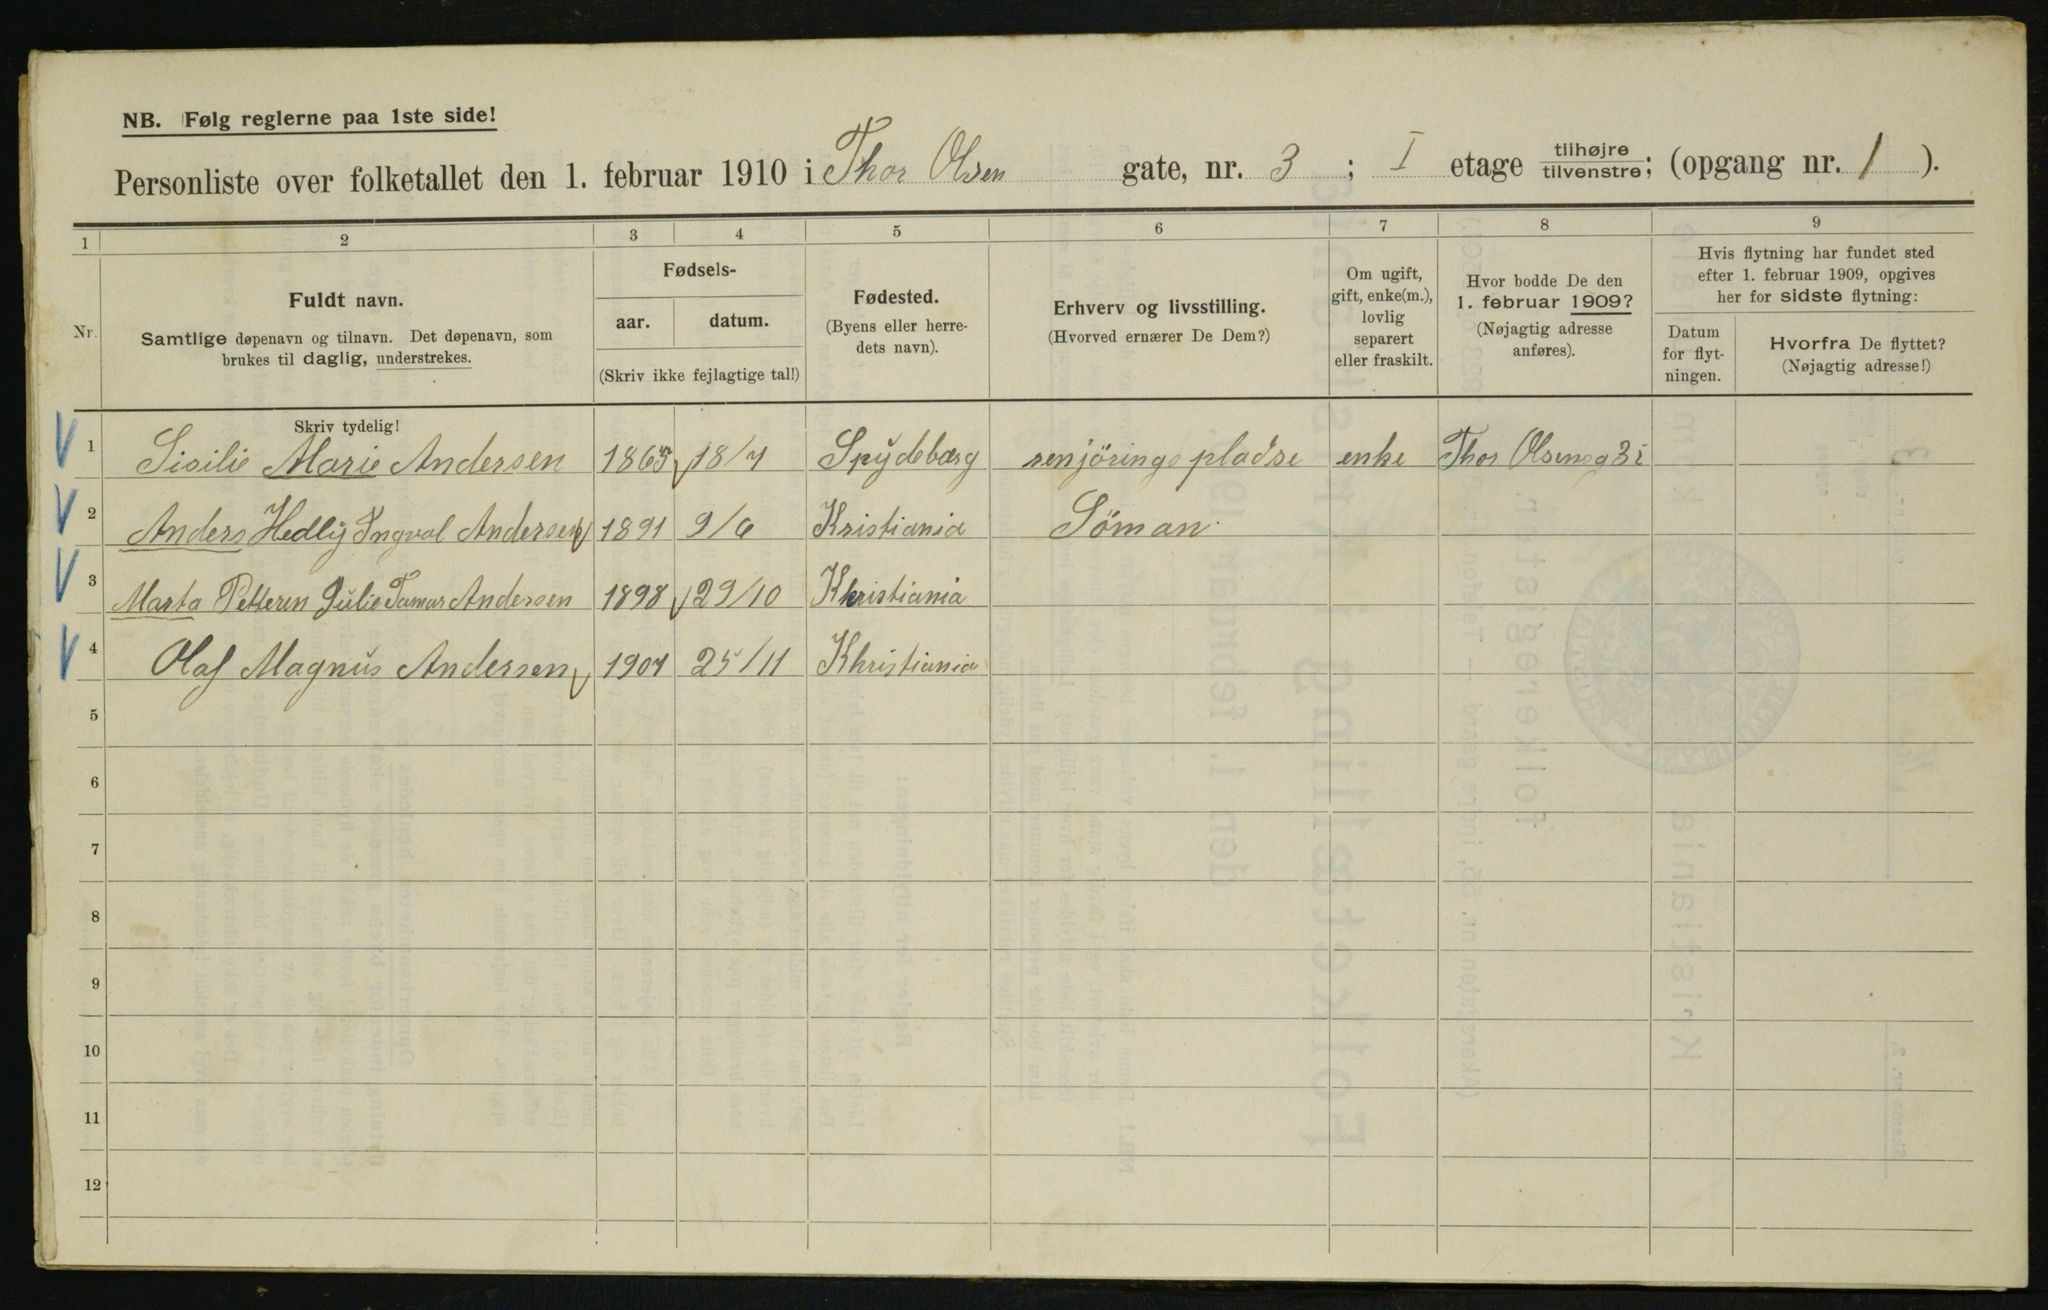 NB. Følg reglerne paa 1ste side!
Personliste over folketallet den 1. februar 1910 i Thor Olsen gate, nr. 3 ; I etage tilhøjre tilvenstre; (opgang nr. 1 ).
1 2 3 4 5 6 7 8 9
Nr.
Fuldt navn.
Samtlige døpenavn og tilnavn. Det døpenavn, som
brukes til daglig, understrekes.
Fødsels-
aar. datum.
(Skriv ikke fejlagtige tal!)
Fødested.
(Byens eller herre-
dets navn).
Erhverv og livsstilling.
(Hvorved ernærer De Dem?)
Om ugift,
gift, enke(m.),
lovlig
separert
eller fraskilt.
Hvor bodde De den
1. februar 1909?
(Nøjagtig adresse
anføres).
Hvis flytning har fundet sted
efter 1. februar 1909, opgives
her for sidste flytning:
Datum
for flyt-
ningen.
Hvorfra De flyttet?
(Nøjagtig adresse!)
Skriv tydelig!
1 Sisilie Marie Andersen 18/7 Spydebærg renjörings pladse enke Thor Olsensg 3
2 Anders Hedly Ingval Andersen 1891 9/6 Kristiania Söman.
3 Marta Petteren Julie Tamar Andersen 1898 29/10 Khristiania
4 Olaf Magnus Andersen 1907 25/11 Khristiania
5
6
7
8
9
10
11
12